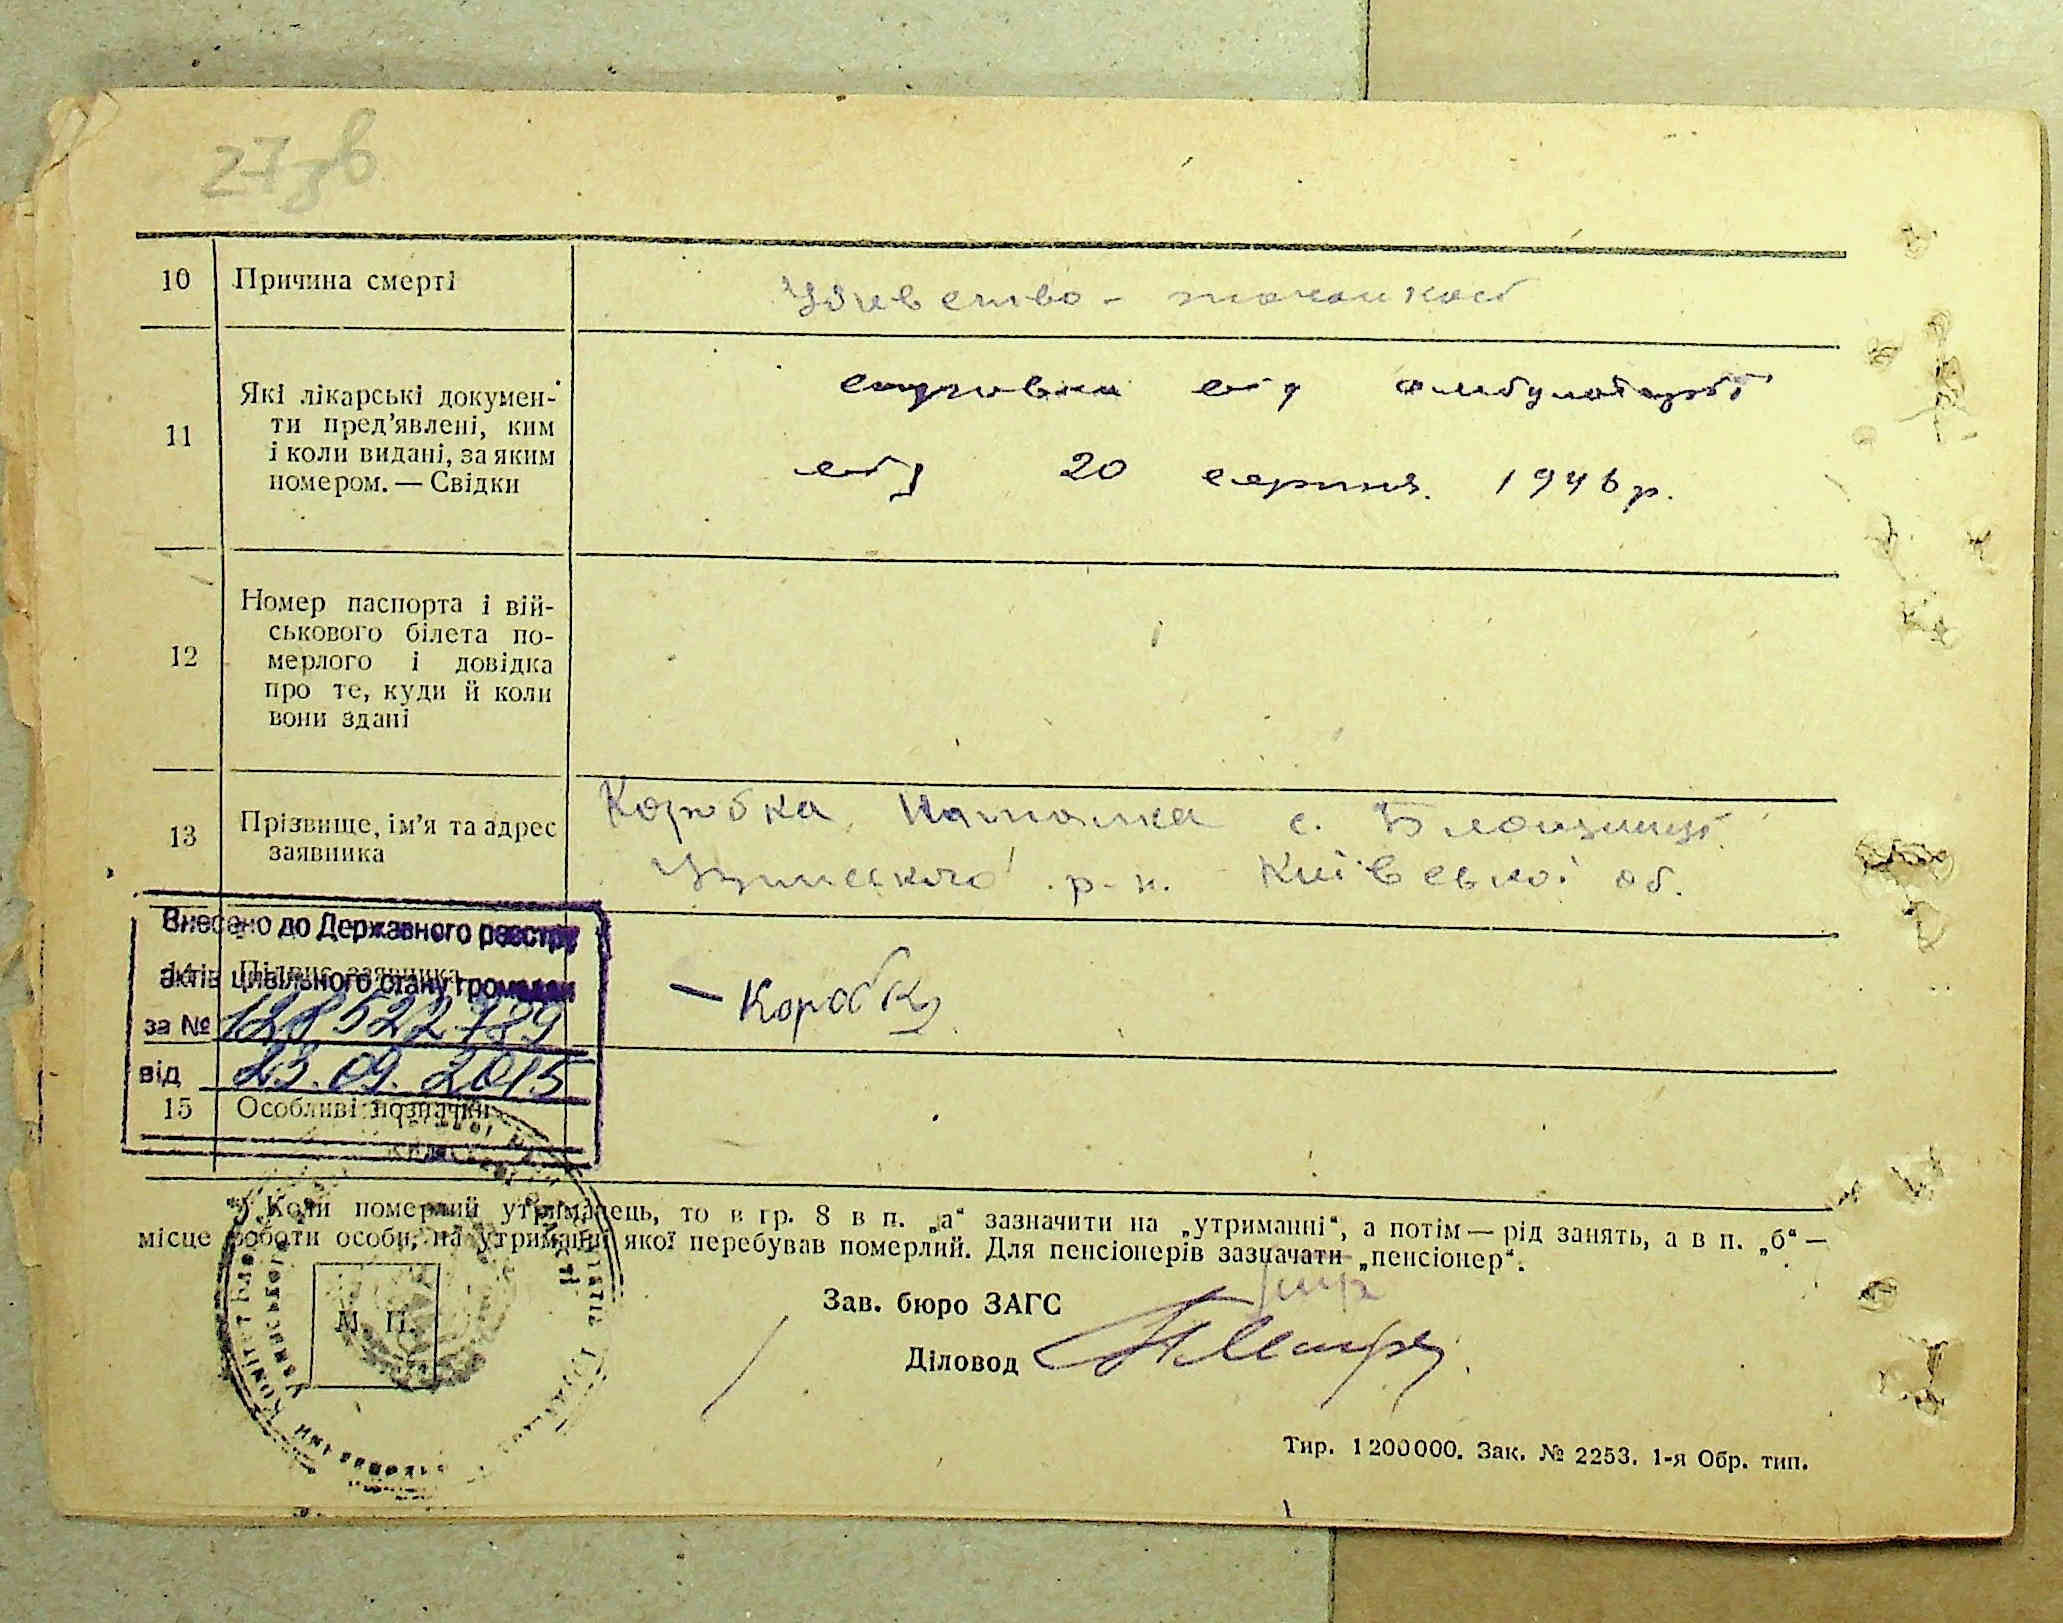 27 зв
10 Причина смерті
Убивство -
11 Які лікарські документи пред’явлені, ким
і коли видані, за яким
номером. — Свідки
від амбулаторії
від 20 серпня 1946 р.
12 Номер паспорта і вій-
ськового білета по-
мерлого і довідка
про те, куди й коли
вони здані
13 Прізвище, ім’я та адрес
заявника
Коробка Наталка с.
р-н. Київської об.
Внесено до Державного реєстру
актів цивільного стану громадян
за № 128522789
від 23.09.2015
14 Підпис заявника
— Коробка
15 Особливі позначки
*) Коли померлий утриманець, то в гр. 8 в п. „а“ зазначити на „утриманні“, а потім — рід занять, а в п. „б“ —
місце роботи особи, на утриманні якої перебував померлий. Для пенсіонерів зазначати „пенсіонер“.
М. П.
Зав. бюро ЗАГС
Діловод
Тир. 1200000. Зак. № 2253. 1-я Обр. тип.